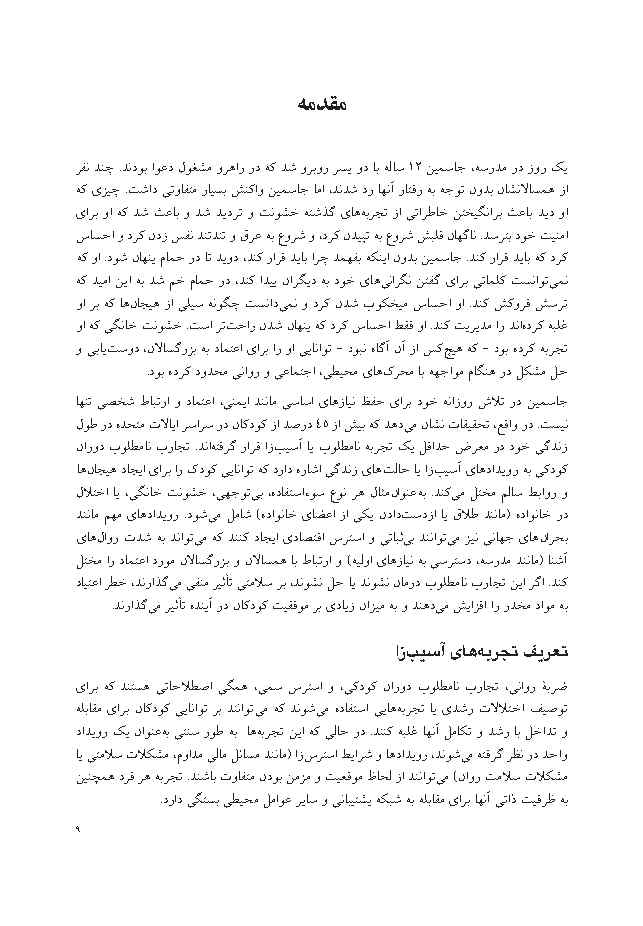 مقدمه
یک روز در مدرسه، جاسمین ۱۲ ساله با دو پسر روبرو شد که در راهرو مشغول دعوا بودند. چند نفر
از همسالانشان بدون توجه به رفتار آنها رد شدند، اما جاسمین واکنش بسیار متفاوتی داشت. چیزی که
او دید باعث برانگیختن خاطراتی از تجربه‌های گذشته خشونت و تردید شد و باعث شد که او برای
امنیت خود بترسد. ناگهان قلبش شروع به تپیدن کرد، و شروع به عرق و تندتند نفس زدن کرد و احساس
کرد که باید فرار کند. جاسمین بدون اینکه بفهمد چرا باید فرار کند، دوید تا در حمام نهان شود. او که
نمی‌توانست کلماتی برای گفتن نگرانی‌های خود به دیگران پیدا کند، در حمام خم شد به این امید که
ترسش فروکش کند. او احساس میخکوب شدن کرد و نمی‌دانست چگونه سیلی از هیجان‌ها که بر او
غلبه کرده‌اند را مدیریت کند. او فقط احساس کرد که نهان شدن راحت‌تر است. خشونت خانگی که او
تجربه کرده بود – که هیچ‌کس از آن آگاه نبود – توانایی او را برای اعتماد به بزرگسالان، دوست‌یابی و
حل مشکل در هنگام مواجهه با محرک‌های محیطی، اجتماعی و روانی محدود کرده بود.
جاسمین در تلاش روزانه خود برای حفظ نیازهای اساسی مانند ایمنی، اعتماد و ارتباط شخصی تنها
نیست. در واقع، تحقیقات نشان می‌دهد که بیش از ۴۵ درصد از کودکان در سراسر ایالات متحده در طول
زندگی خود در معرض حداقل یک تجربه نامطلوب یا آسیب‌زا قرار گرفته‌اند. تجارب نامطلوب دوران
کودکی به رویدادهای آسیب‌زا یا حالت‌های زندگی اشاره دارد که توانایی کودک را برای ایجاد هیجان‌ها
و روابط سالم مختل می‌کند. به‌عنوان‌مثال هر نوع سوءاستفاده، بی‌توجهی، خشونت خانگی، یا اختلال
در خانواده (مانند طلاق یا ازدست‌دادن یکی از اعضای خانواده) شامل می‌شود. رویدادهای مهم مانند
بحران‌های جهانی نیز می‌توانند بی‌ثباتی و استرس اقتصادی ایجاد کنند که می‌تواند به شدت به روال‌های
آشنا (مانند مدرسه، دسترسی به نیازهای اولیه) و ارتباط با همسالان و بزرگسالان مورد اعتماد را مختل
کند. اگر این تجارب نامطلوب درمان نشوند یا حل نشوند، بر سلامتی تأثیر منفی می‌گذارند، خطر اعتیاد
به مواد مخدر را افزایش می‌دهند و به میزان زیادی بر موفقیت کودکان در آینده تأثیر می‌گذارند.
تعریف تجربه‌های آسیب‌زا
ضربهٔ روانی، تجارب نامطلوب دوران کودکی، و استرس سمی، همگی اصطلاحاتی هستند که برای
توصیف اختلالات رشدی یا تجربه‌هایی استفاده می‌شوند که می‌توانند بر توانایی کودکان برای مقابله
و تداخل با رشد و تکامل آنها غلبه کنند. در حالی که این تجربه‌ها به طور سنتی به‌عنوان یک رویداد
واحد در نظر گرفته می‌شوند، رویدادها و شرایط استرس‌زا (مانند تسلسل مالی مداوم، مشکلات سلامتی یا
مشکلات سلامت روان) می‌توانند از لحاظ موقعیت و مزمن بودن متفاوت باشند. تجربه هر فرد همچنین
به ظرفیت ذاتی آنها برای مقابله به شبکه پشتیبانی و سایر عوامل محیطی بستگی دارد.
۹